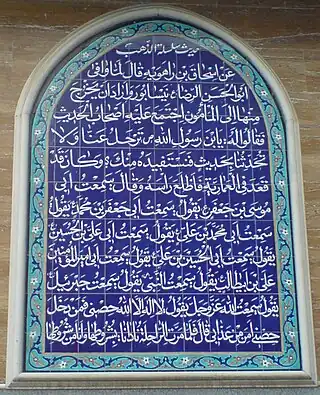 حدیث سلسلة الذهب
عن اسحاق بن راهویه قال لما وافی
ابوالحسن الرضاء بنیسابور و اراد ان یخرج
منها الی المأمون اجتمع علیه اصحاب الحدیث
فقالوا له یابن رسول الله ص ترحل عنا و لا
تحدثنا بحدیث فنستفیده منک؟ و کان قد
قعد فی العماریة فاطلع رأسه و قال سمعت ابی
موسی بن جعفر ع یقول سمعت ابی جعفر بن محمد یقول
سمعت ابی محمد بن علی یقول سمعت ابی علی بن الحسین
یقول سمعت ابی الحسین بن علی یقول سمعت ابی امیرالمؤمنین
علی بن ابیطالب یقول سمعت النبی یقول سمعت جبرئیل
یقول سمعت الله عز وجل یقول لا اله الا الله حصنی فمن دخل
حصنی امن من عذابی قال فلما مرت الراحلة نادانا بشروطها و انا من شروطها